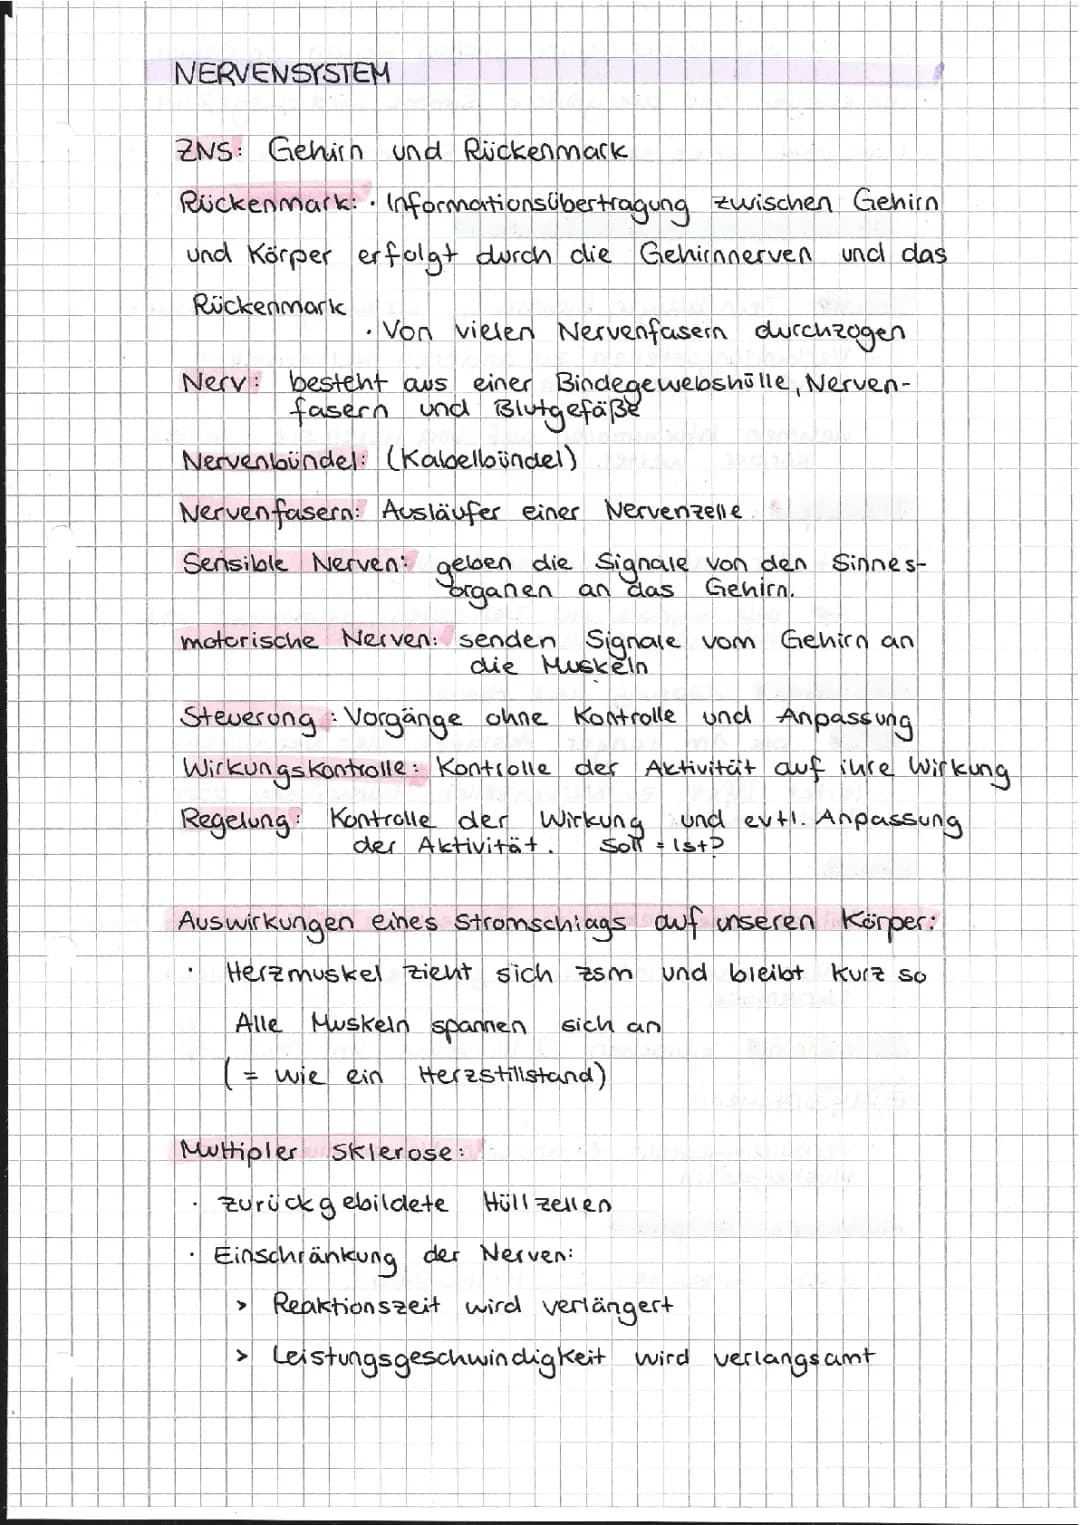 NERVENSYSTEM
ZNS: Gehirn und Rückenmark
Rückenmark: · Informationsübertragung zwischen Gehirn
und Körper erfolgt durch die Gehirnnerven und das
Rückenmark
· Von vielen Nervenfasern durchzogen
Nerv: besteht aus einer Bindegewebshülle, Nerven-
fasern und Blutgefäße
Nervenbündel: (Kabelbündel)
Nervenfasern: Ausläufer einer Nervenzelle
Sensible Nerven: geben die Signale von den Sinnes-
organen an das Gehirn.
motorische Nerven: senden Signale vom Gehirn an
die Muskeln
Steuerung: Vorgänge ohne Kontrolle und Anpassung
Wirkungskontrolle: Kontrolle der Aktivität auf ihre Wirkung
Regelung: Kontrolle der Wirkung und evtl. Anpassung
der Aktivität. Soll = Ist?
Auswirkungen eines Stromschlags auf unseren Körper:
· Herzmuskel zieht sich zsm und bleibt kurz so
Alle Muskeln spannen sich an
(= wie ein Herzstillstand)
Multipler Sklerose:
· zurückgebildete Hüllzellen
· Einschränkung der Nerven:
> Reaktionszeit wird verlängert
> Leistungsgeschwindigkeit wird verlangsamt